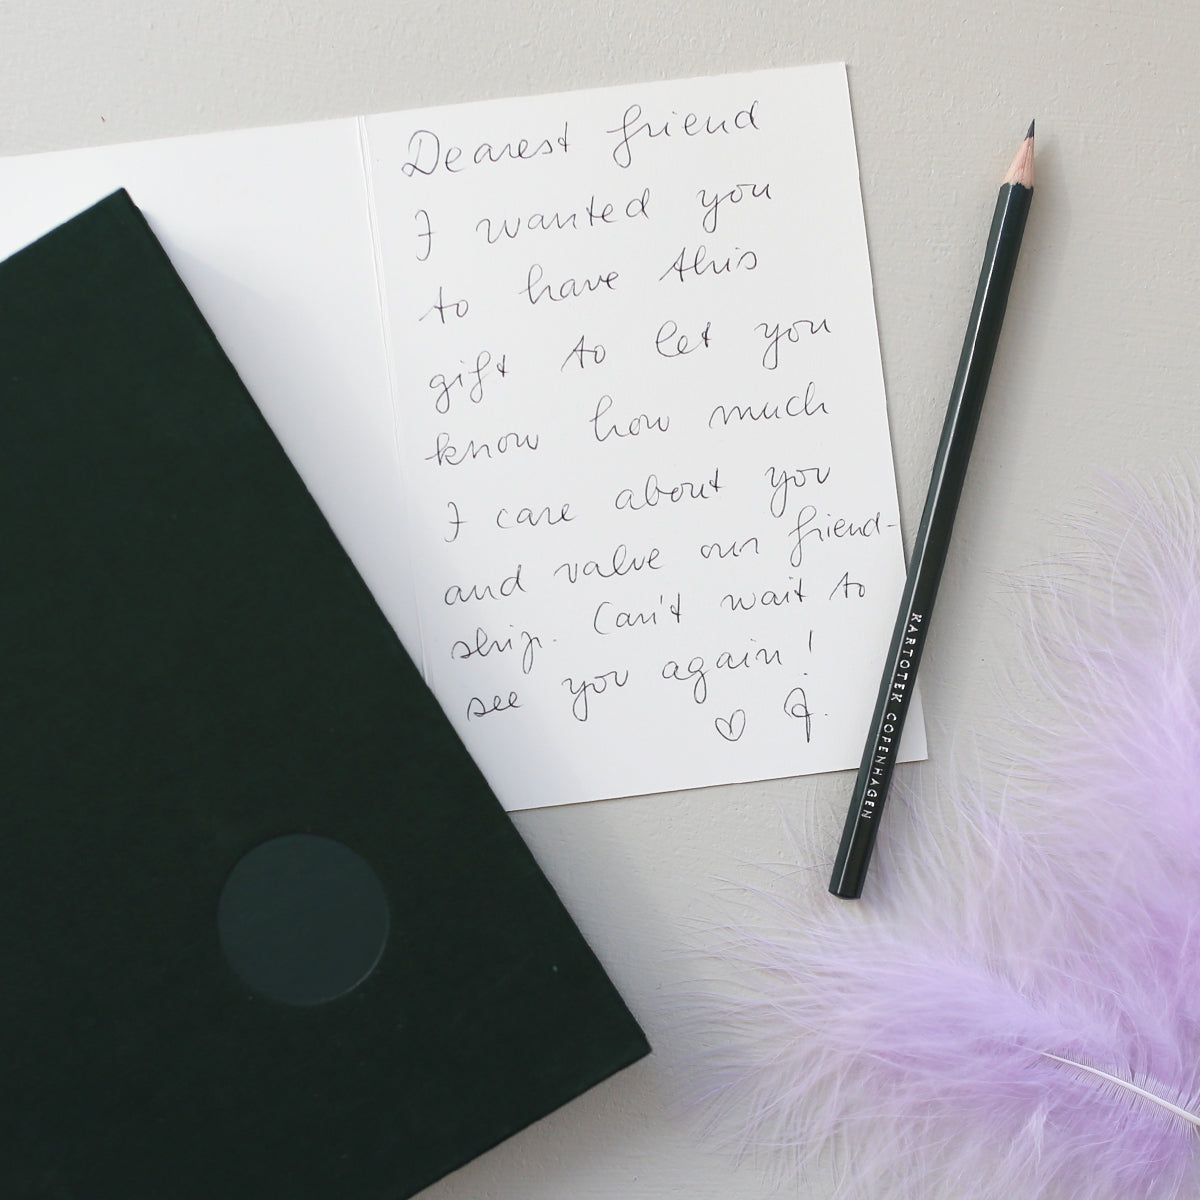 Dearest friend
I wanted you
to have this
gift to let you
know how much
I care about you
and value our friend-
ship. Can't wait to
see you again!
♡ J.
KARTOTEK COPENHAGEN